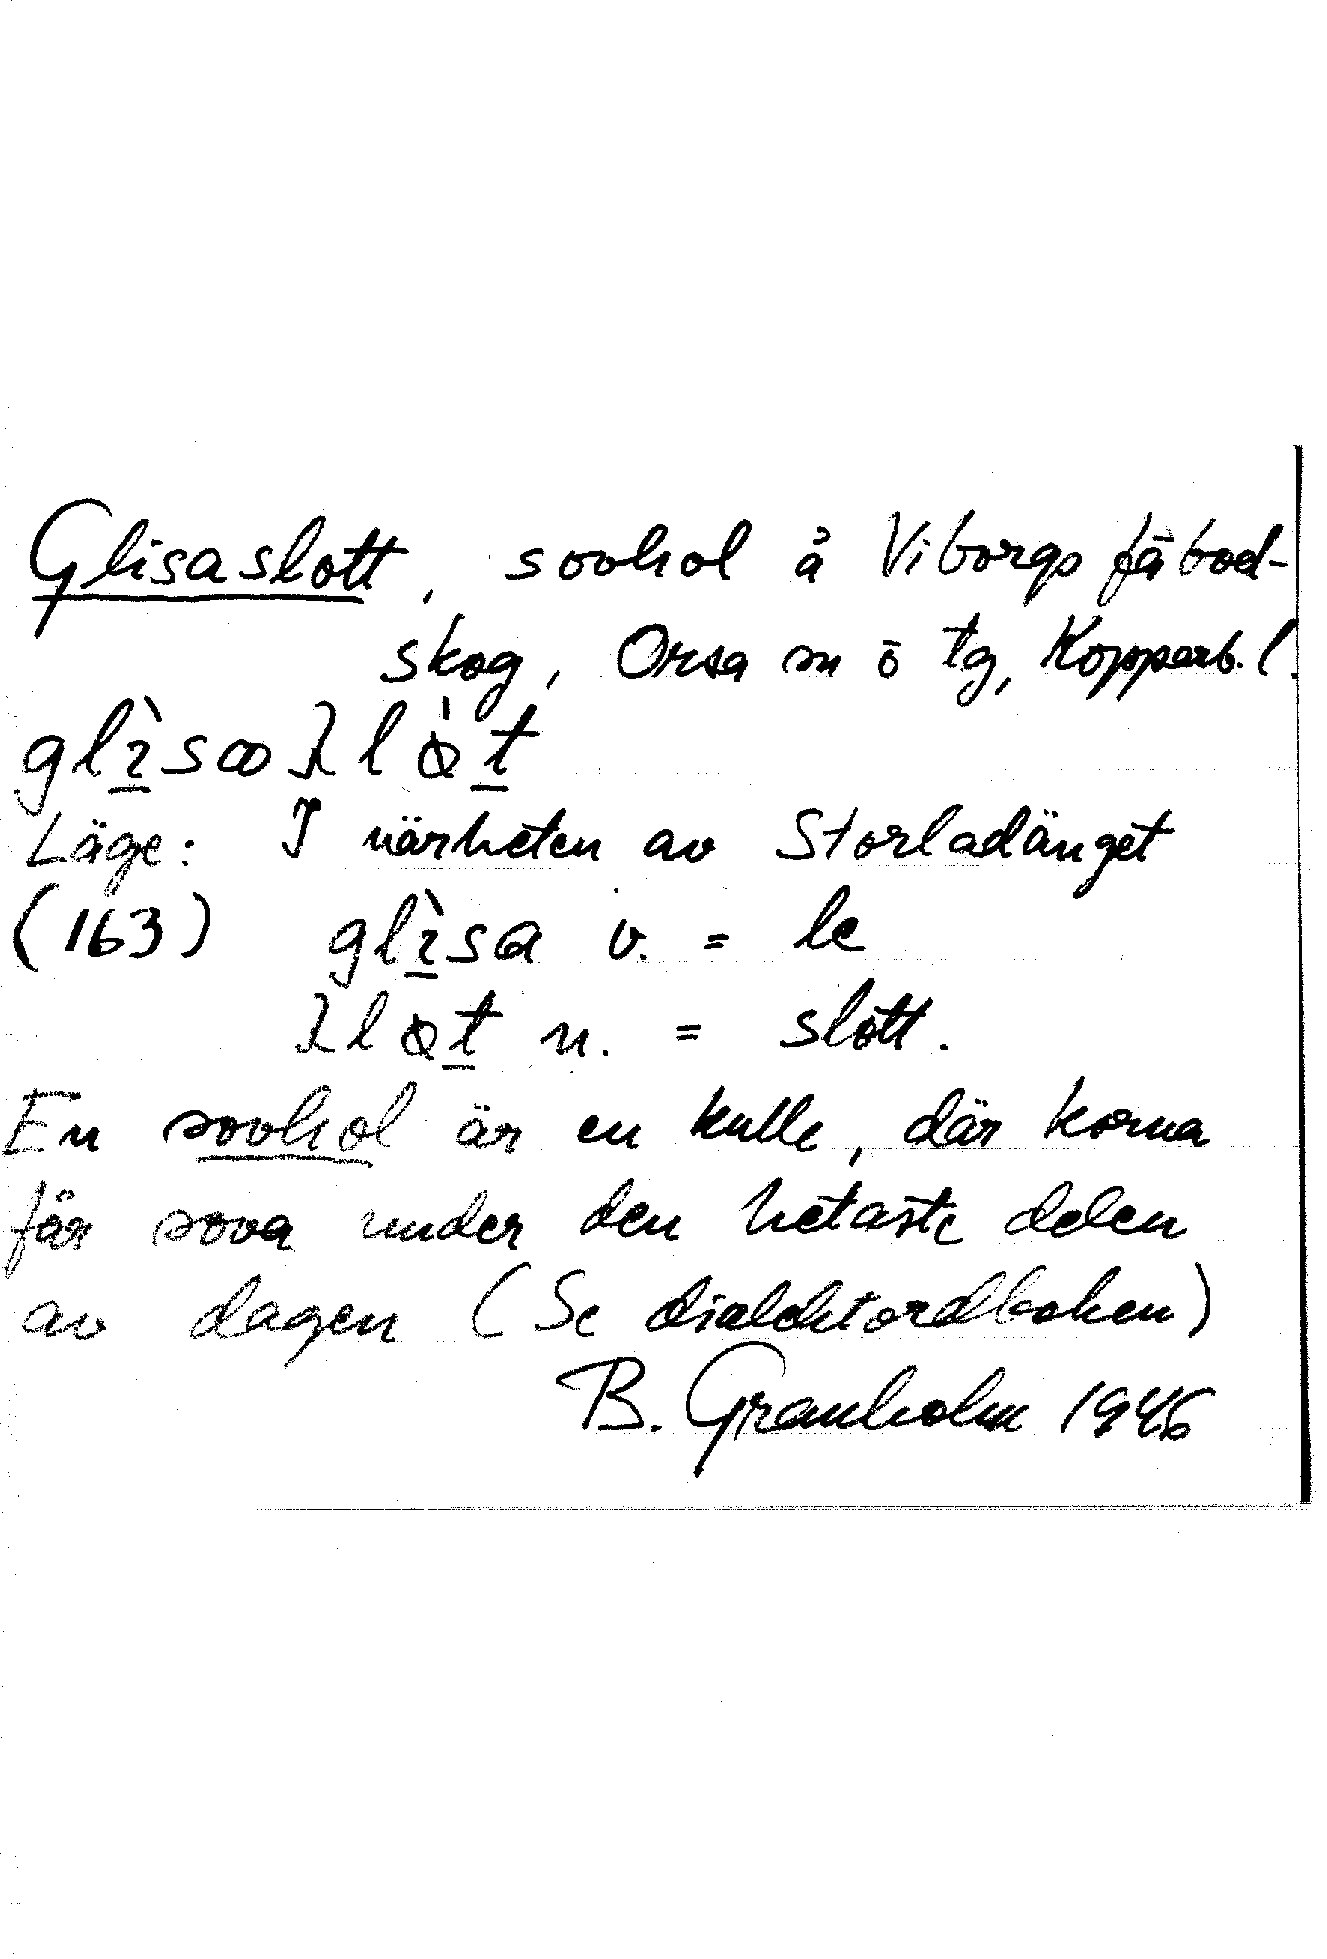 Glisaslott, sovhol å Viborgs fäbod-
skog, Orsa sn ö tg, Kopparb. l.
Läge: I närheten av Storladänget
(163) v. = le
n. = slott.
En sovhol är en kulle, där korna
får sova under den hetaste delen
av dagen (Se dialektordboken)
B. Granholm 1946